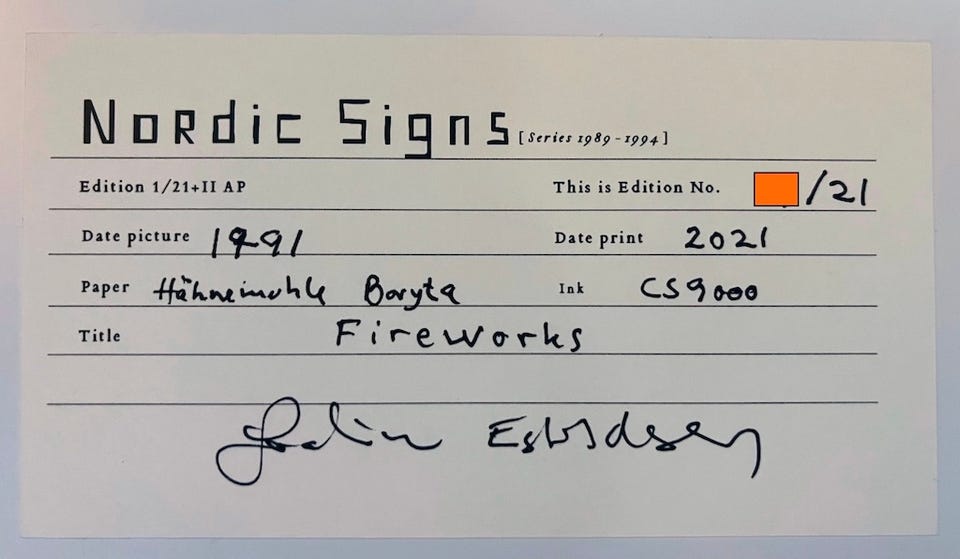 Nordic Signs [Series 1989-1994]
Edition 1/21+II AP This is Edition No. /21
Date picture 1991 Date print 2021
Paper Hähnemuhle Baryta Ink CS9000
Title Fireworks